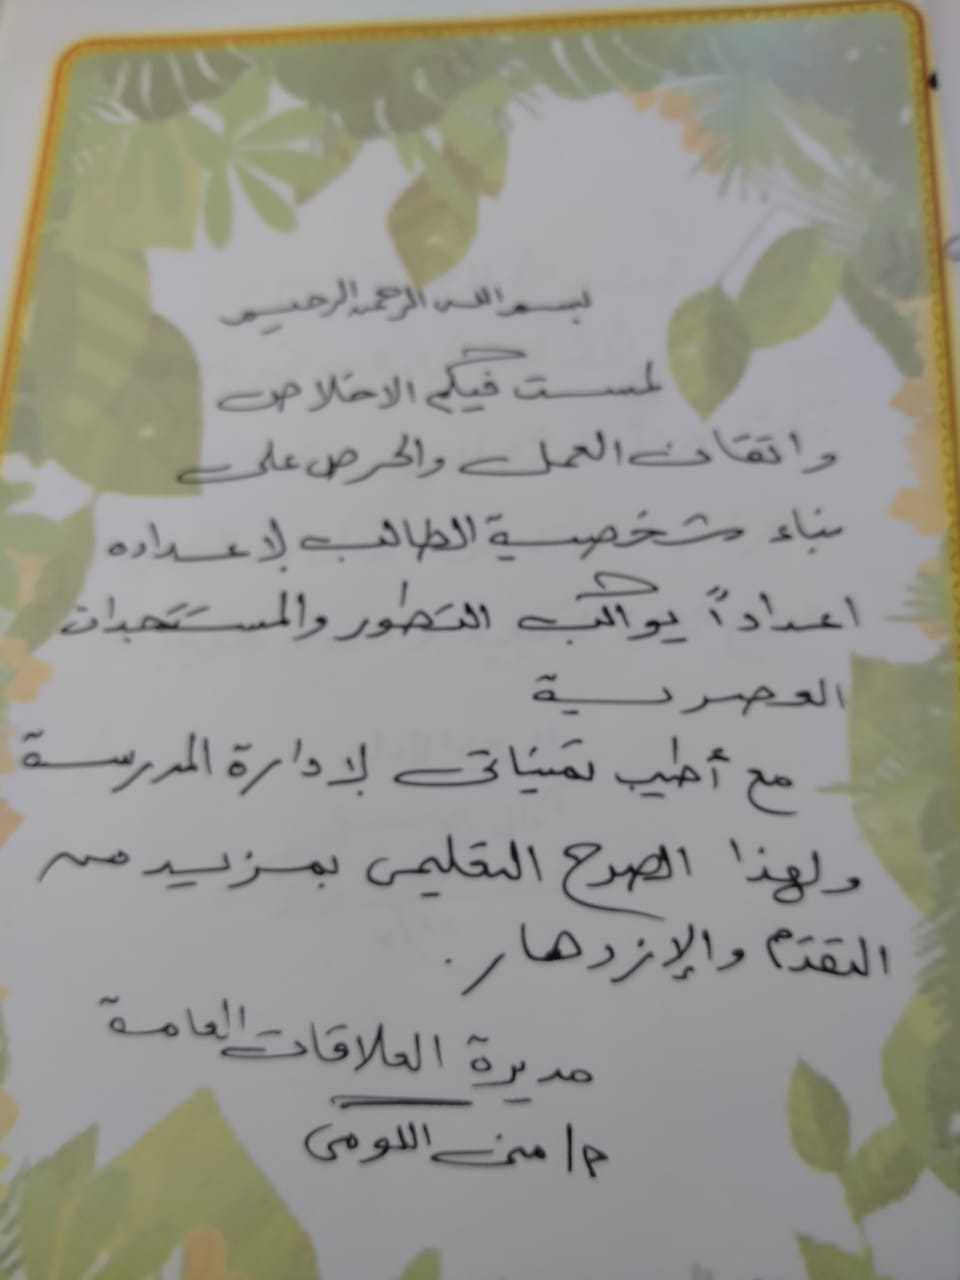 بسم الله الرحمن الرحيم
لمست فيكم الاخلاص
واتقان العمل والحرص على
بناء شخصية الطالب لاعداده
اعداداً يواكب التطور والمستجدات
العصرية
مع أطيب تمنياتى لادارة المدرسة
ولهذا الصرح التعليمى بمزيد من
التقدم والإزدهار.
مديرة العلاقات العامة
م/ منى اللومى